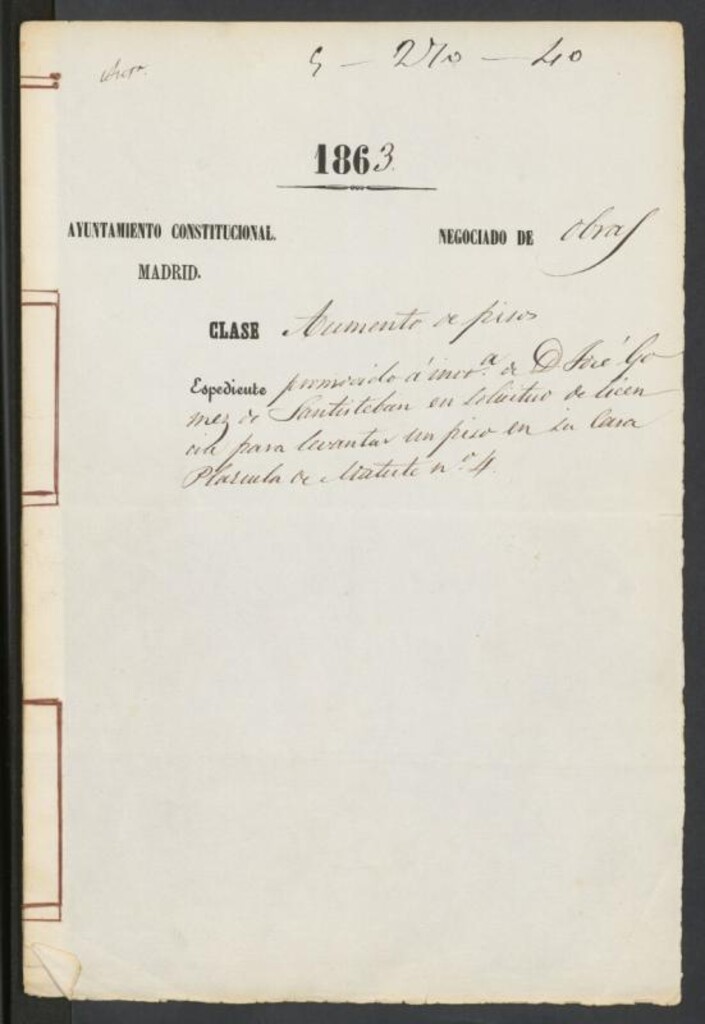 5 - 270 - 40
1863
AYUNTAMIENTO CONSTITUCIONAL.
MADRID.
NEGOCIADO DE obras
CLASE Aumento de pisos
Espediente promovido á inst.ª de D José Go
mez de Santisteban en solicitud de licen
cia para levantar un piso en su Casa
Plazuela de Matute nº 4.